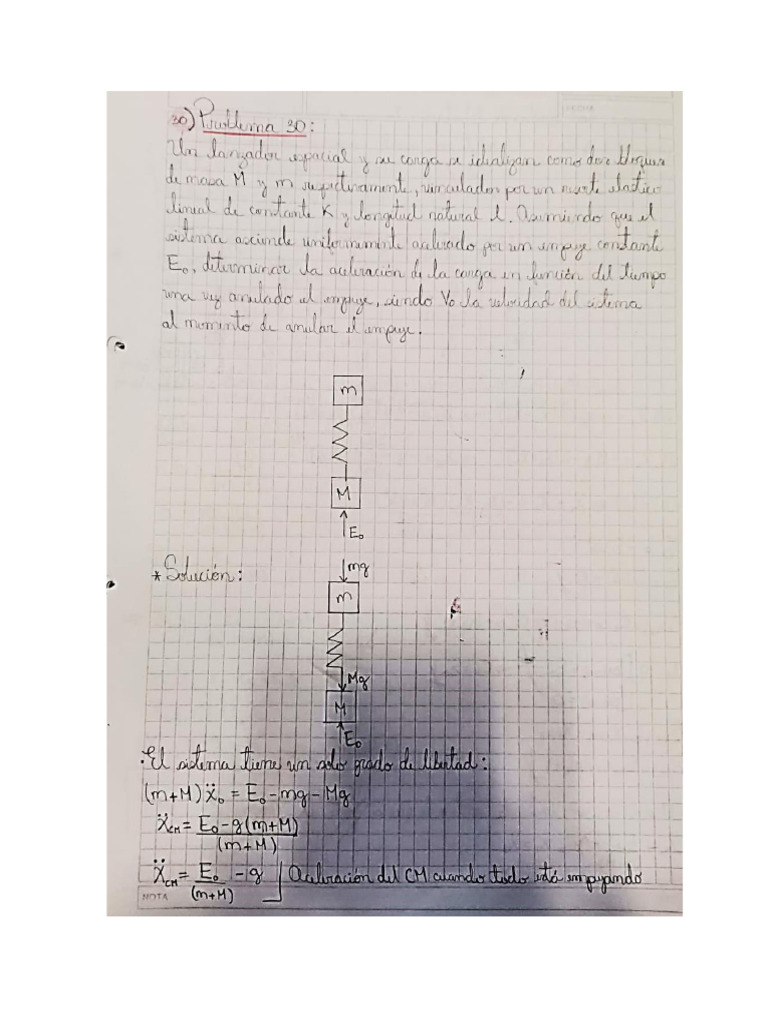 30) Problema 30:
Un lanzador espacial y su carga se idealizan como dos bloques
de masa M y m respectivamente, vinculados por un resorte elástico
lineal de constante K y longitud natural l. Asumiendo que el
sistema asciende uniformemente acelerado por un empuje constante
E₀, determinar la aceleración de la carga en función del tiempo
una vez anulado el empuje, siendo V₀ la velocidad del sistema
al momento de anular el empuje.
m
M
E₀
* Solución:
mg
m
Mg
M
E₀
· El sistema tiene un solo grado de libertad:
(m+M) Ẍ₀ = E₀ - mg - Mg
Ẍ_CM = E₀ - g(m+M)
(m+M)
Ẍ_CM = E₀ - g Aceleración del CM cuando todo está empujando
(m+M)
NOTA